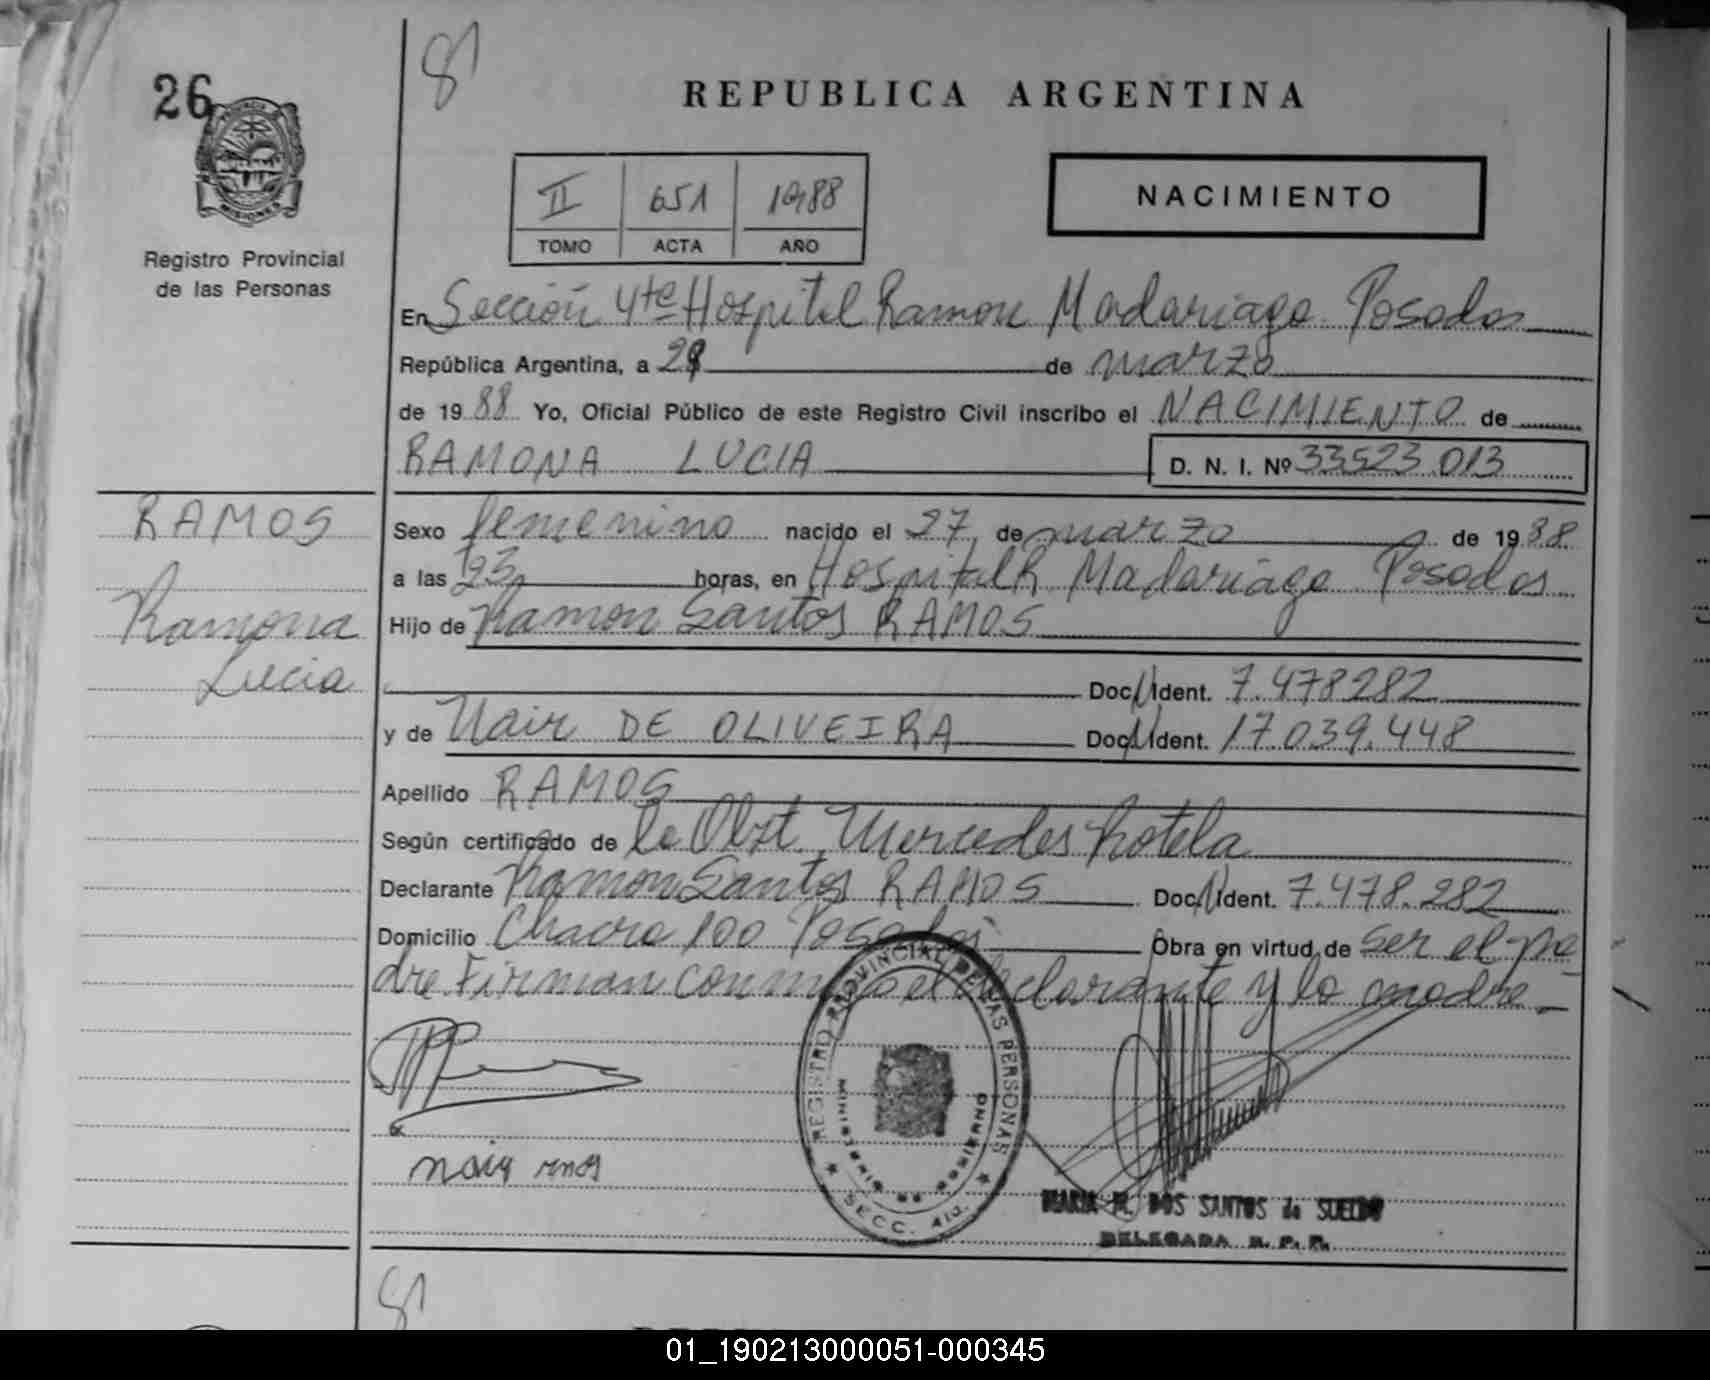 26
81
REPUBLICA ARGENTINA
PROVINCIA
MISIONES
II 651 1988
TOMO ACTA AÑO
NACIMIENTO
Registro Provincial
de las Personas
En Sección 4ta Hospital Ramon Madariaga Posadas
República Argentina, a 29 de marzo
de 1988 Yo, Oficial Público de este Registro Civil inscribo el NACIMIENTO de
RAMONA LUCIA D. N. I. Nº 33523.013
RAMOS
Ramona
Lucia
Sexo femenino nacido el 27 de marzo de 1988
a las 23 horas, en Hospital R Madariaga Posadas
Hijo de Ramon Santos RAMOS
Doc N Ident. 7.478282
y de Nair DE OLIVEIRA Doc N Ident. 17.039.448
Apellido RAMOS
Según certificado de la Obst. Mercedes Rotela
Declarante Ramon Santos RAMOS Doc N Ident. 7.478.282
Domicilio Chacra 100 Posadas Obra en virtud de ser el pa-
dre. Firman conmigo el declarante y la madre
REGISTRO PROVINCIAL DE LAS PERSONAS
MINISTERIO DE GOBIERNO
SECC. 4ta.
MARIA M. DOS SANTOS de SUELDO
DELEGADA R. P. P.
81
01_190213000051-000345